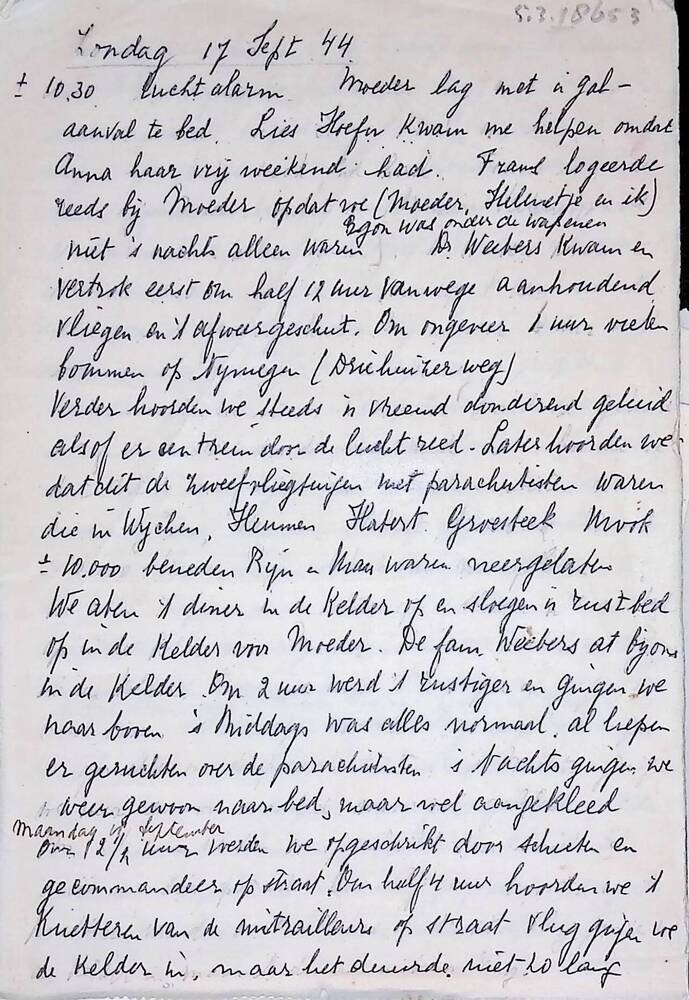 5.3.18653
Zondag 17 Sept 44
± 10.30 luchtalarm Moeder lag met 'n gal-
aanval te bed. Lies Hoefn kwam me helpen omdat
Anna haar vrij weekend had. Frans logeerde
reeds bij Moeder opdat we (Moeder, Helmetje en ik)
Egon was onder de wapenen
niet 's nachts alleen waren Dr Weebers kwam en
vertrok eerst om half 12 uur vanwege aanhoudend
vliegen en 't afweergeschut. Om ongeveer 1 uur vielen
bommen op Nymegen (Driehuizerweg)
Verder hoorden we steeds 'n vreemd donderend geluid
alsof er een trein door de lucht reed. Later hoorden we
dat dit de zweefvliegtuigen met parachutisten waren
die in Wychen, Heumen Hatert Groesbeek Mook
± 10.000 beneden Rijn en Maas waren neergelaten
We aten 't diner in de kelder op en sloegen 'n rustbed
op in de kelder voor Moeder. De fam Weebers at by ons
in de kelder. Om 2 uur werd 't rustiger en gingen we
naar boven 's Middags was alles normaal, al liepen
er geruchten over de parachutisten 's Nachts gingen we
weer gewoon naar bed, maar wel aangekleed
Maandag 18 September
Om 12½ uur werden we opgeschrikt door schieten en
gecommandeer op straat. Om half 4 uur hoorden we 't
knetteren van de mitrailleurs op straat vlug gingen we
de kelder in, maar het duurde niet zo lang